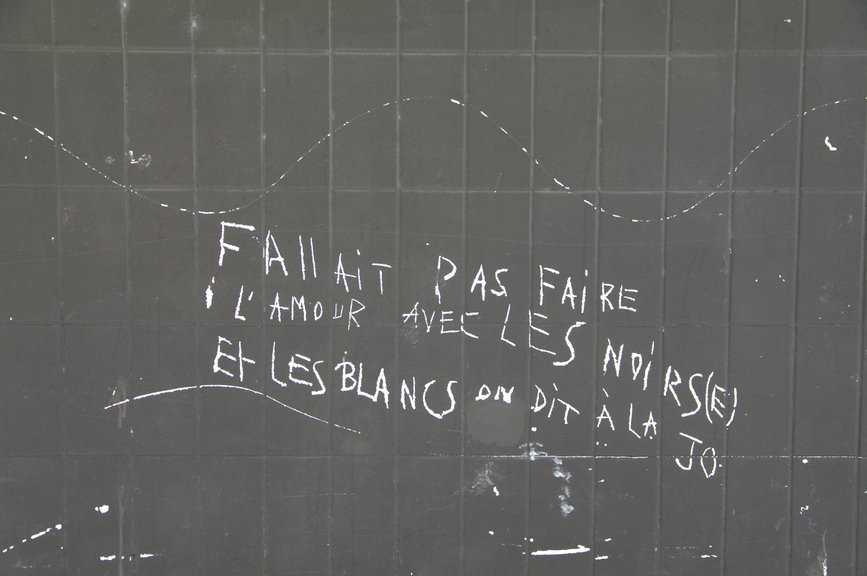 FAllAiT PAS FAiRE
L'AMOUR AVEC LES NOIRS(E)
Et LES BLANCS ON DiT À LA
JO